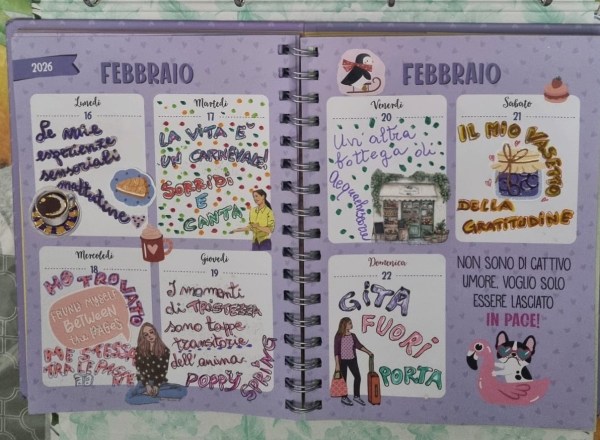 2026
FEBBRAIO
Lunedì
16
Le mie
esperienze
sensoriali
mattutine
Martedì
17
LA VITA È
UN CARNEVALE!
SORRIDI
E
CANTA
Mercoledì
18
HO TROVATO
FOUND MYSELF
BETWEEN
THE PAGES
ME STESSA
TRA LE PAGINE
Giovedì
19
I momenti
di TRISTEZZA
sono tappe
transitorie
dell'anima.
POPPY
SPRING
FEBBRAIO
Venerdì
20
Un'altra
bottega di
Acquachiara
Sabato
21
IL MIO VASETTO
DELLA
GRATITUDINE
Domenica
22
GITA
FUORI
PORTA
NON SONO DI CATTIVO
UMORE. VOGLIO SOLO
ESSERE LASCIATO
IN PACE!